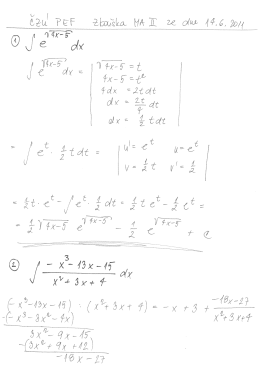 ČZU PEF zkouška MA II ze dne 14.6.2011
① ∫ e^√(4x-5) dx
∫ e^√(4x-5) dx = | √(4x-5) = t
4x-5 = t²
4dx = 2t dt
dx = 2t/4 dt
dx = 1/2 t dt |
= ∫ e^t · 1/2 t dt = | u' = e^t u = e^t
v = 1/2 t v' = 1/2 |
= 1/2 t · e^t - ∫ e^t · 1/2 dt = 1/2 t e^t - 1/2 e^t =
= 1/2 √(4x-5) e^√(4x-5) - 1/2 e^√(4x-5) + c
② ∫ (-x³-13x-15)/(x²+3x+4) dx
(-x³-13x-15) : (x²+3x+4) = -x + 3 + (-18x-27)/(x²+3x+4)
-(-x³-3x²-4x)
3x²-9x-15
-(3x²+9x+12)
-18x-27